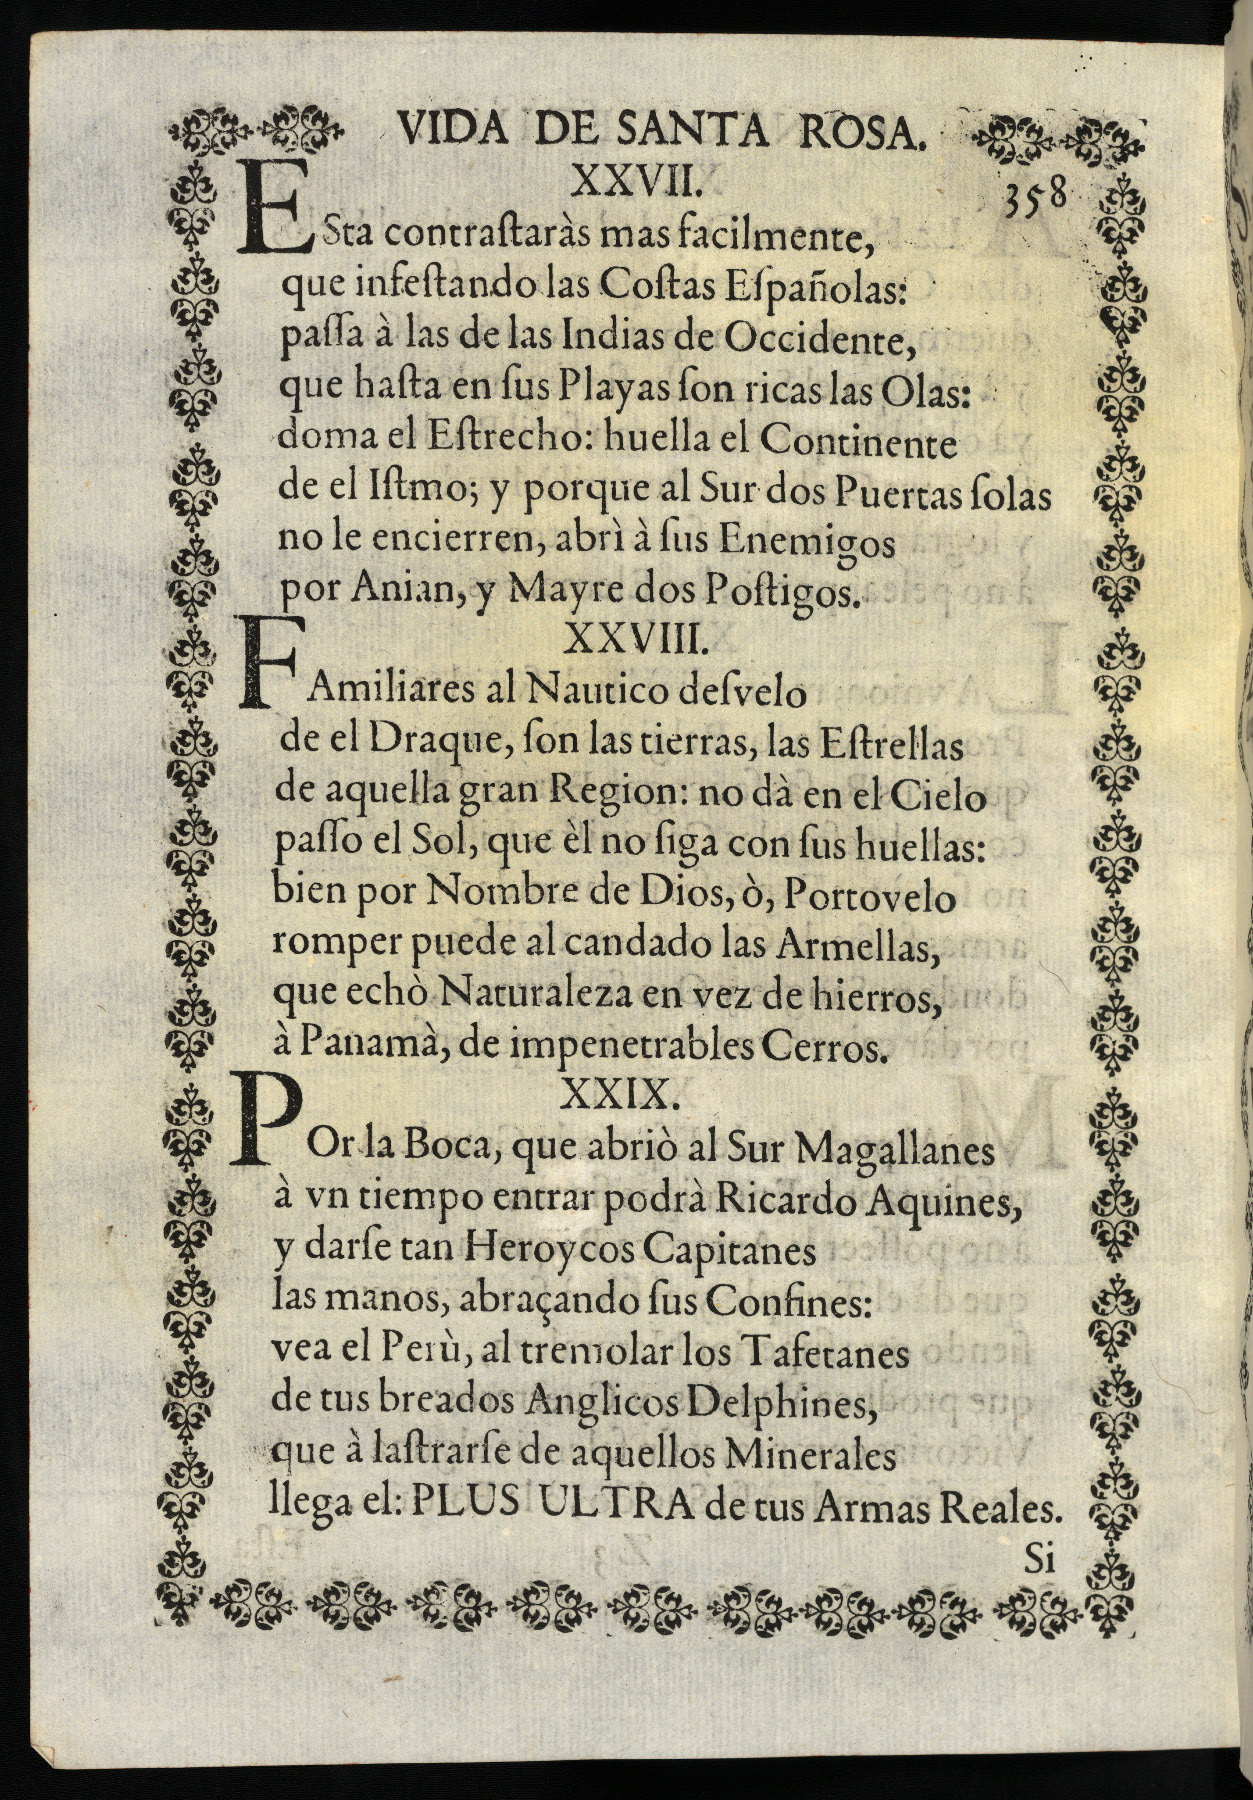 VIDA DE SANTA ROSA.
XXVII.
358
ESta contraſtaràs mas facilmente,
que infeſtando las Coſtas Eſpañolas:
paſſa à las de las Indias de Occidente,
que haſta en ſus Playas ſon ricas las Olas:
doma el Eſtrecho: huella el Continente
de el Iſtmo; y porque al Sur dos Puertas ſolas
no le encierren, abrì à ſus Enemigos
por Anian, y Mayre dos Poſtigos.
XXVIII.
FAmiliares al Nautico deſvelo
de el Draque, ſon las tierras, las Eſtrellas
de aquella gran Region: no dà en el Cielo
paſſo el Sol, que èl no ſiga con ſus huellas:
bien por Nombre de Dios, ò, Portovelo
romper puede al candado las Armellas,
que echò Naturaleza en vez de hierros,
à Panamà, de impenetrables Cerros.
XXIX.
POr la Boca, que abriò al Sur Magallanes
à vn tiempo entrar podrà Ricardo Aquines,
y darſe tan Heroycos Capitanes
las manos, abraçando ſus Confines:
vea el Perù, al tremolar los Tafetanes
de tus breados Anglicos Delphines,
que à laſtrarſe de aquellos Minerales
llega el: PLUS ULTRA de tus Armas Reales.
Si